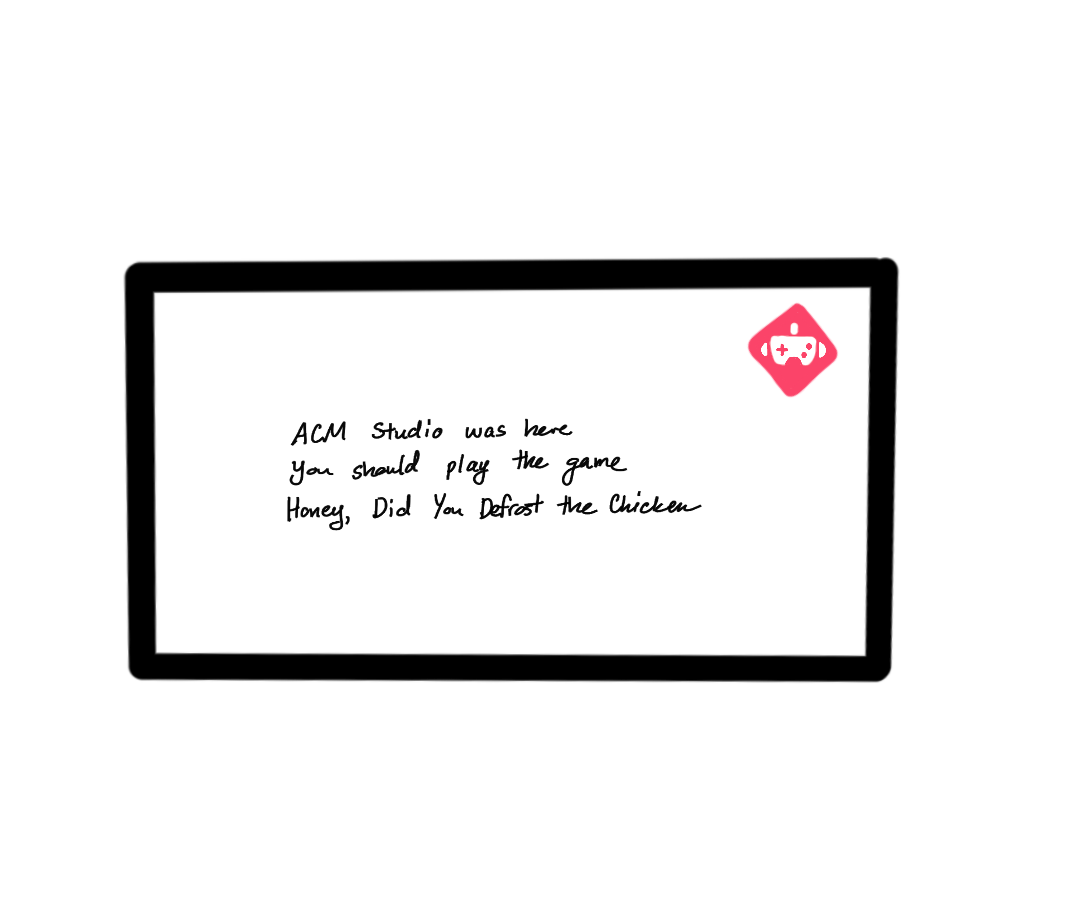 ACM Studio was here
you should play the game
Honey, Did You Defrost the Chicken